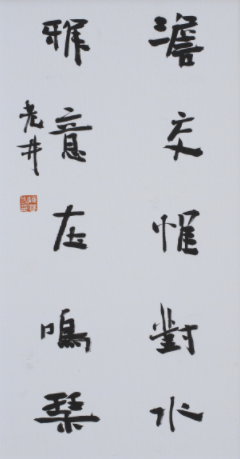 澹交惟對水
雅意在鳴琴
老井